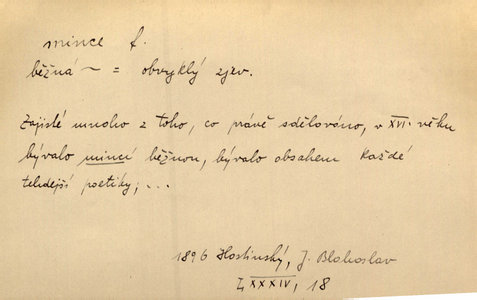 mince f.
běžná ~ = obvyklý zjev.
Zajisté mnoho z toho, co právě sdělováno, v XVI. věku
bývalo mincí běžnou, bývalo obsahem každé
tehdejší poetiky; ...
1896 Hostinský, J. Blahoslav
I, XXXIV, 18